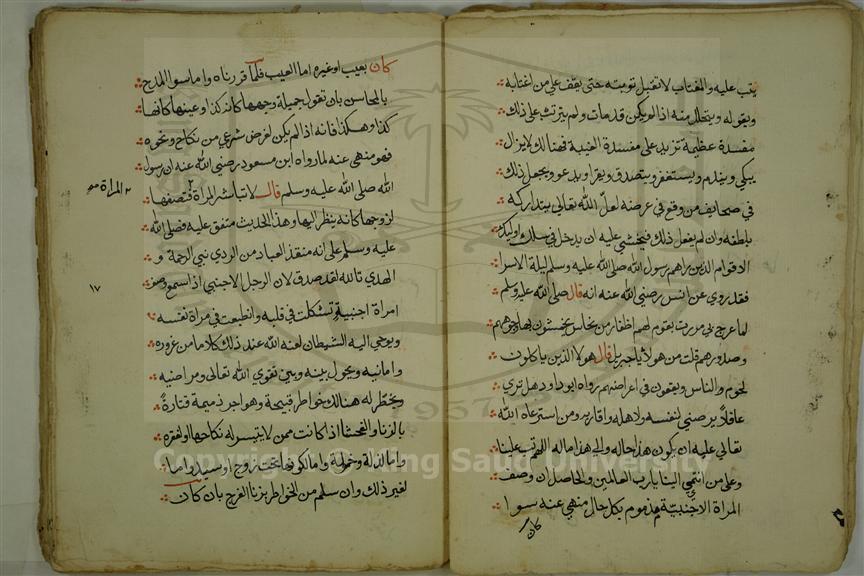 يتب عليه والمغتاب لا تقبل توبته حتى يقف على من اغتابه
ويقوله ويتحلل منه اذا لم يكن قد مات ولم يترتب على ذلك
مفسدة عظيمة تزيد على مفسدة الغيبة فهنالك لا يزال
يبكي ويندم ويستغفر ويتصدق ويقرا ويدعو ويجعل ذلك
في صحايف من وقع في عرضه لعل الله تعالى يتداركه
بلطفه وان لم يفعل ذلك فيخشى عليه ان يدخل في سلك اوليك
الاقوام الذين مر بهم رسول الله صلى الله عليه وسلم ليلة الاسرا
فقد روي عن انس رضي الله عنه انه قال صلى الله عليه وسلم
لما عرج بي مررت بقوم لهم اظفار من نحاس يخمشون بها وجوههم
وصدورهم قلت من هولا يا جبريل قال هولا الذين ياكلون
لحوم الناس ويقعون في اعراضهم رواه ابو داود هل ترى
عاقلا يرضى لنفسه ولاهله واقاربه ومن استرعاه الله
تعالى عليه ان يكون هذا حاله والى هذا ماله اللهم تب علينا
وعلى من انتمى الينا يا رب العالمين والحاصل ان وصف
المراة الاجنبية مذموم بكل حال منهي عنه سوا
كان
كان بعيب او غيره اما العيب فلما قررناه واما سوا المدح
بالمحاسن بان تقول جميلة وجهها كان كذا وعينها كانها
كذا وهكذا فانه اذا لم يكن لغرض شرعي من نكاح ونحوه
فهو منهي عنه لما رواه ابن مسعود رضي الله عنه ان رسول
الله صلى الله عليه وسلم قال لا تباشر المراة فتصفها
المراة
لزوجها كانه ينظر اليها وهذا الحديث متفق عليه فصلى الله
عليه وسلم على انه منقذ العباد من الردي نبي الرحمة و
الهدي تالله لقد صدق لان الرجل الاجنبي اذا سمع وصف
١٧
امراة اجنبية تشكلت في قلبه وانطبعت في مراة نفسه
ويوحي اليه الشيطان لعنه الله عند ذلك كلاما من غروره
وامانيه ويحول بينه وبين تقوى الله تعالى ومراضيه
ويخطر له هنالك خواطر قبيحة وهواجر ذميمة فتارة
بالزنا والفحشا اذا كانت ممن لا يتيسر له نكاحها لفقره
واما لذلة وخملة واما لكونها تحت زوج او سيد واما
لغير ذلك وان سلم من الخواطر بزنا الفرج بان كان
Copyright © King Saud University
1957